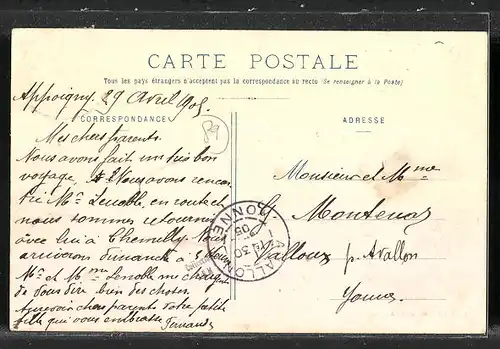 CARTE POSTALE
Tous les pays étrangers n'acceptent pas la correspondance au recto (Se renseigner à la Poste)
Appoigny 29 Avril 1905
CORRESPONDANCE
ADRESSE
Mes chers parents.
Nous avons fait un très bon
voyage, Nous avons rencon
tré Mr Lenoble, en route et
nous sommes retournés
avec lui à Chemilly. Nous
arriverons dimanche à
Mr et Mme Lenoble me
de vous dire bien des choses.
Au revoir chers parents votre petite
fille qui vous embrasse
Fernande
Monsieur et Mme
Montenot
Valloux p. Avallon
Yonne
AVALLON
YONNE
05